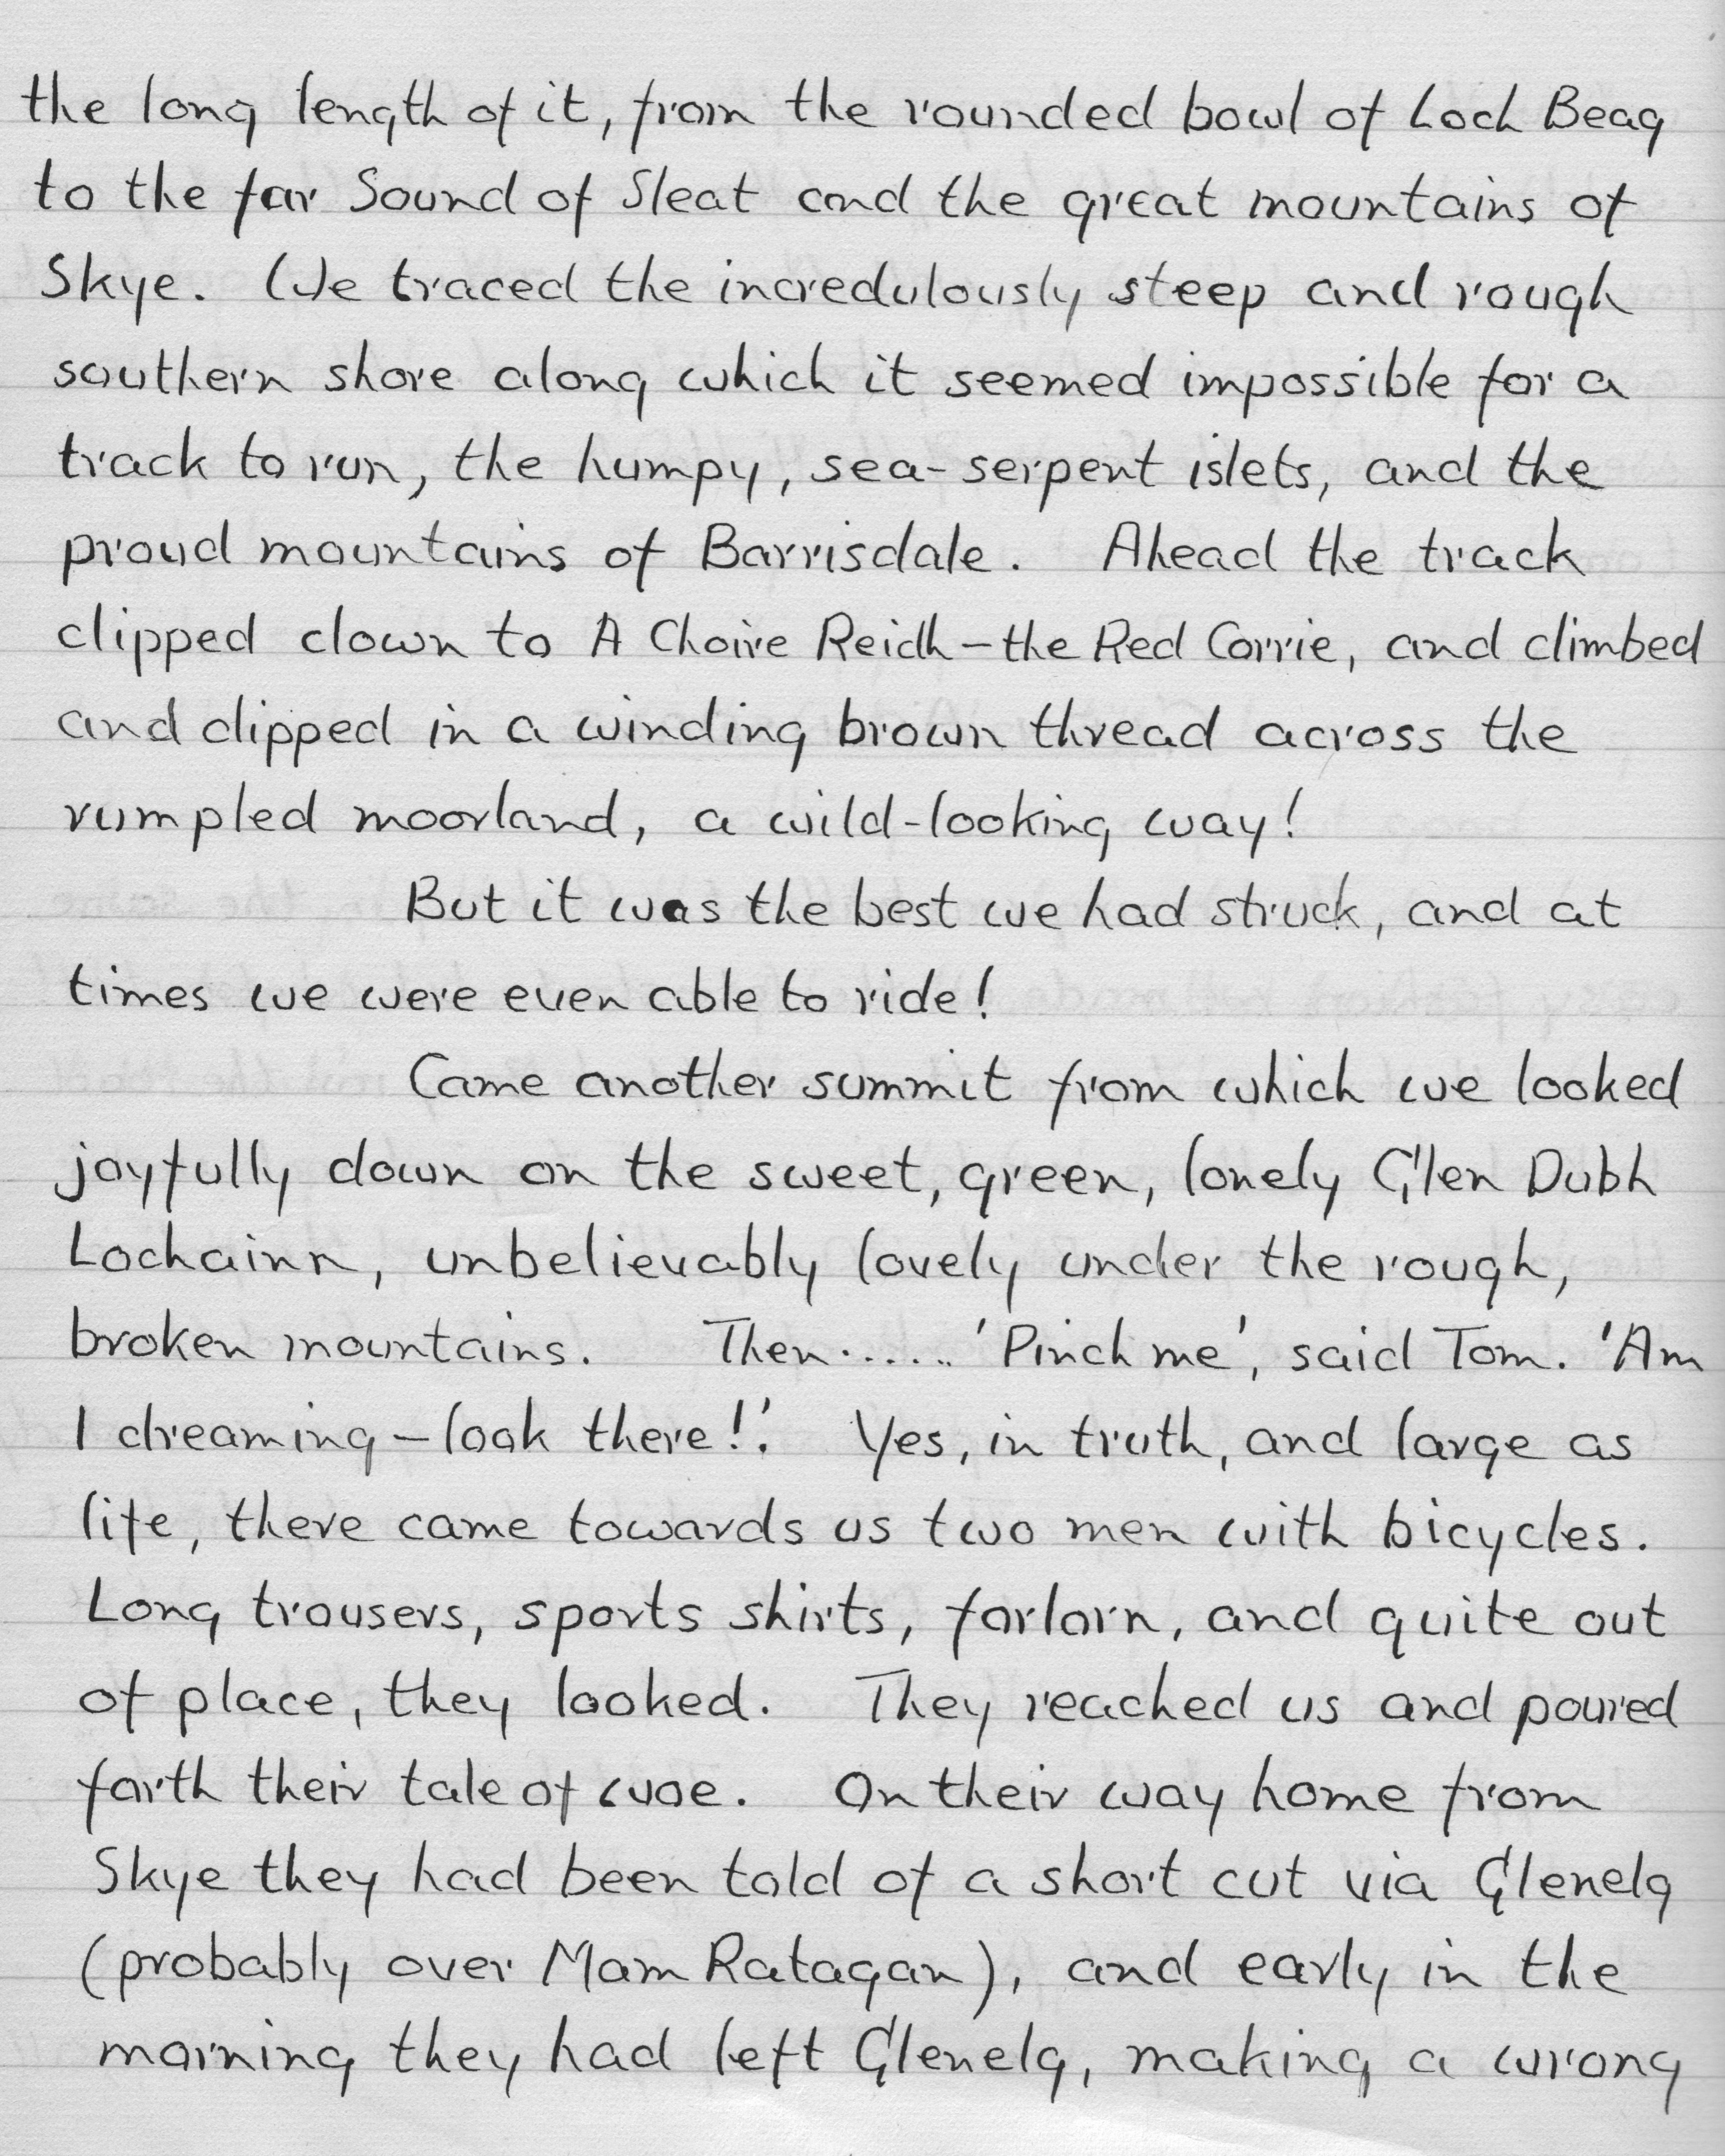 the long length of it, from the rounded bowl of Loch Beag
to the far Sound of Sleat and the great mountains of
Skye. We traced the incredulously steep and rough
southern shore along which it seemed impossible for a
track to run, the humpy, sea-serpent islets, and the
proud mountains of Barrisdale. Ahead the track
dipped down to A Choire Reidh – the Red Corrie, and climbed
and dipped in a winding brown thread across the
rumpled moorland, a wild-looking way!
But it was the best we had struck, and at
times we were even able to ride!
Came another summit from which we looked
joyfully down on the sweet, green, lonely Glen Dubh
Lochainn, unbelievably lovely under the rough,
broken mountains. Then...... 'Pinch me', said Tom. 'Am
I dreaming – look there!'. Yes, in truth, and large as
life, there came towards us two men with bicycles.
Long trousers, sports shirts, forlorn, and quite out
of place, they looked. They reached us and poured
forth their tale of woe. On their way home from
Skye they had been told of a short cut via Glenelg
(probably over Mam Ratagan), and early in the
morning they had left Glenelg, making a wrong